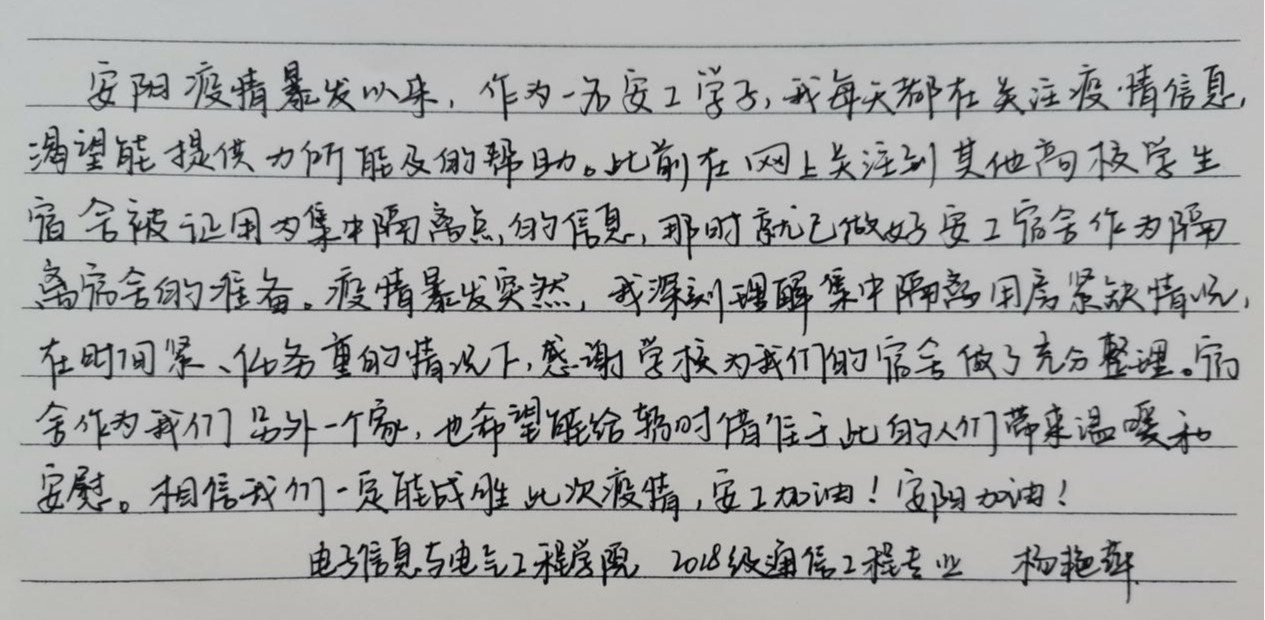 安阳疫情暴发以来，作为一名安工学子，我每天都在关注疫情信息，
渴望能提供力所能及的帮助。此前在网上关注到其他高校学生
宿舍被证用为集中隔离点的信息，那时就已做好安工宿舍作为隔
离宿舍的准备。疫情暴发突然，我深刻理解集中隔离用房紧缺情况，
在时间紧、任务重的情况下，感谢学校为我们的宿舍做了充分整理。宿
舍作为我们另外一个家，也希望能给暂时借住于此的人们带来温暖和
安慰。相信我们一定能战胜此次疫情，安工加油！安阳加油！
电子信息与电气工程学院 2018级通信工程专业 杨艳